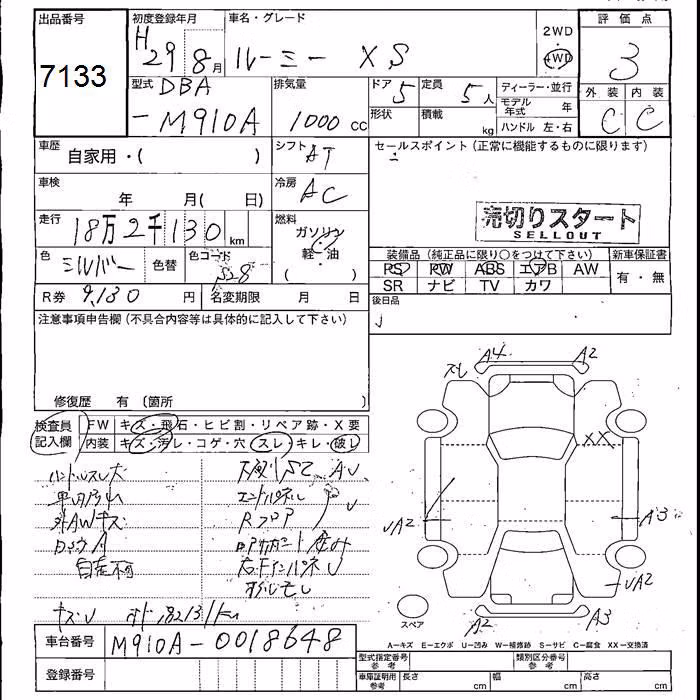 出品番号
初度登録年月
車名・グレード
2WD
4WD
評価点
7133
H29 8月
ルーミー XS
3
型式
DBA
-M910A
排気量
1000 cc
ドア 5
定員 5人
形状
積載 kg
ディーラー・並行
モデル年式 年
ハンドル 左・右
外装
内装
C
C
車歴
自家用・( )
シフト
AT
セールスポイント(正常に機能するものに限ります)
車検
年 月( 日)
冷房
AC
走行
18万2千130 km
燃料
ガソリン
軽・油
売切りスタート
SELLOUT
色
シルバー
色替
色コード
S28
装備品(純正品に限り○をつけて下さい)
新車保証書
PS PW ABS エアB AW
SR ナビ TV カワ
有・無
R券 9,130 円
名変期限 月 日
後日品
注意事項申告欄(不具合内容等は具体的に記入して下さい)
修復歴 有 〔箇所 〕
検査員記入欄
FW キズ・飛石・ヒビ割・リペア跡・X要
内装 キズ・汚レ・コゲ・穴 スレ キレ・破レ
ハンドルスレ大
外AWキズ
自走不可
エンドパネル
Rフロア
キズU
スレ
A4
A2
XX
UA2
A3
UA2
A2
A3
スペア
A=キズ E=エクボ U=凹み W=補修跡 S=サビ C=腐食 XX=交換済
車台番号
M910A-0018648
登録番号
型式指定番号 参考
類別区分番号 参考
車庫証明用 参考
長さ cm
幅 cm
高さ cm